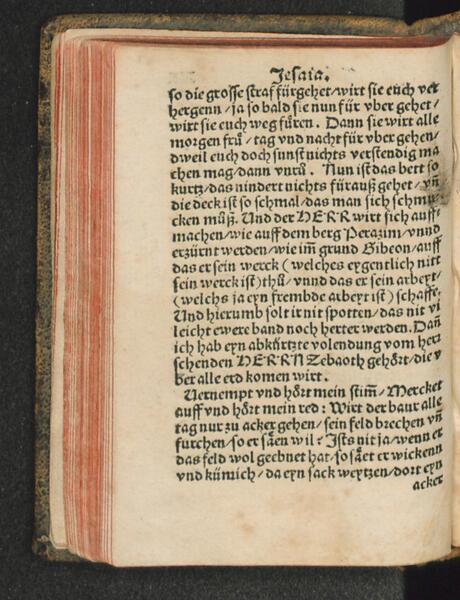 Jesaia.
so die grosse straf fürgehet / wirt sie euch ver
hergenn / ja so bald sie nun für vber gehet /
wirt sie euch weg fůren. Dann sie wirt alle
morgen frů / tag vnd nacht für vber gehen /
dweil euch doch sunst nichts verstendig ma
chen mag / dann vnrů. Nun ist das bett so
kurtz / das nindert nichts für auß gehet / vn̄
die deck ist so schmal / das man sich schmu-
cken můß. Und der HERR wirt sich auff-
machen / wie auff dem berg Perazim / vnnd
erzürnt werden / wie im̄ grund Gibeon / auff
das er sein werck (welches eygentlich nitt
sein werck ist) thů / vnnd das er sein arbeyt /
(welchs ja eyn frembde arbeyt ist) schaffe.
Und hierumb solt ir nit spotten / das nit vi
leicht ewere band noch herter werden. Dan̄
ich hab eyn abkürtzte volendung vom herr
schenden HERRN Zebaoth gehört / die v
ber alle erd komen wirt.
Vernempt vnd hört mein stim̄ / Mercket
auff vnd hört mein red: Wirt der baur alle
tag nur zu acker gehen / sein feld brechen vn̄
furchen / so er säen wil? Ists nit ja / wenn er
das feld wol geebnet hat / so säet er wickenn
vnd kümich / da eyn sack weytzen / dort eyn
acker